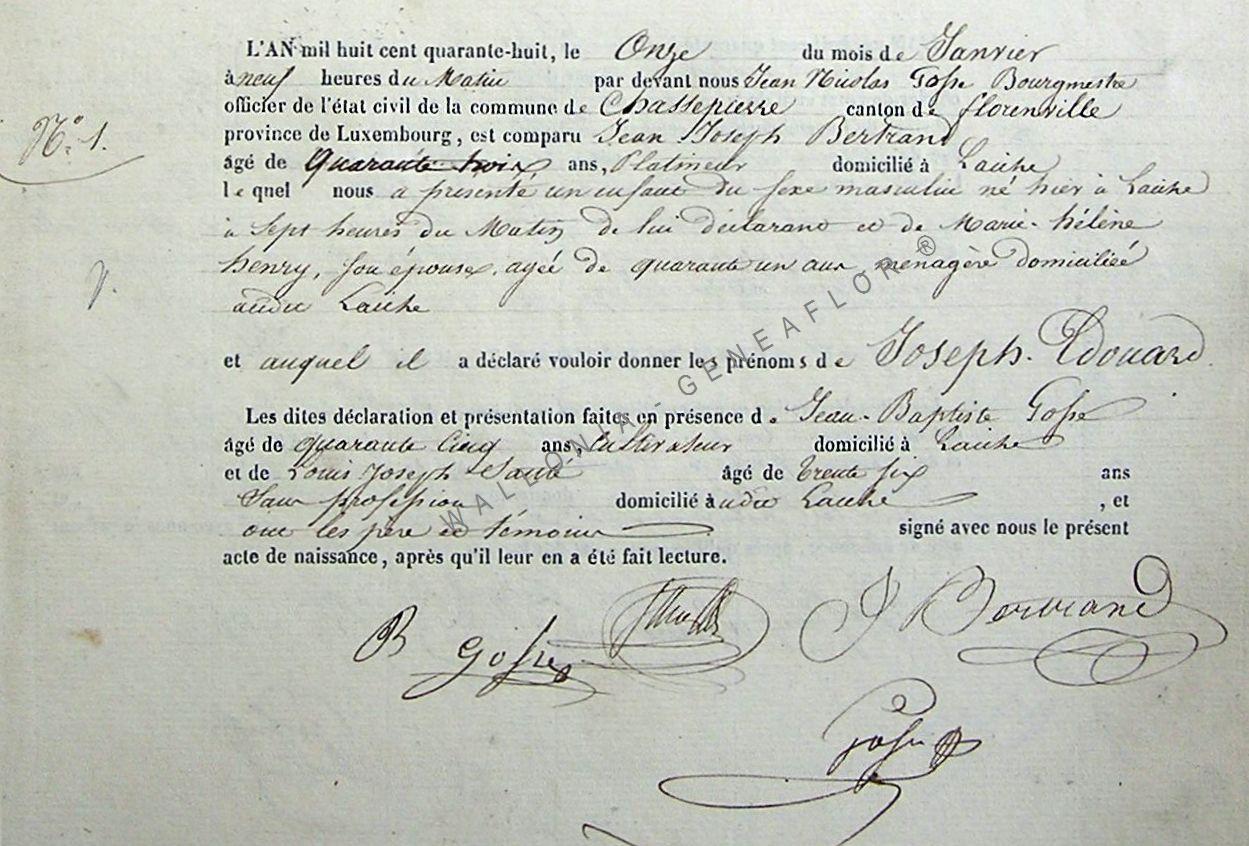 L'AN mil huit cent quarante-huit, le Onze du mois de Janvier
à neuf heures du Matin par devant nous Jean Nicolas Gosse Bourgmestre
officier de l'état civil de la commune de Chassepierre canton de florenville
province de Luxembourg, est comparu Jean Joseph Bertrand
N° 1.
âgé de Quarante trois ans, Platineur domicilié à Laiche
le quel nous a présenté un enfant du sexe masculin né hier à Laiche
à sept heures du Matin de lui déclarant et de Marie-hélène
henry, son épouse, agée de quarante un ans ménagère domiciliée
audit Laiche
et auquel il a déclaré vouloir donner les prénoms de Joseph-Edouard.
Les dites déclaration et présentation faites en présence de Jean-Baptiste Gosse
âgé de quarante Cinq ans, Cultivateur domicilié à Laiche
et de Louis Joseph âgé de trente six ans
Sans profession domicilié à audit Laiche, et
ont les père et témoins signé avec nous le présent
acte de naissance, après qu'il leur en a été fait lecture.
J Bertrand
B Gosse
Gosse
WALLONIA - GENEAFLOR ®